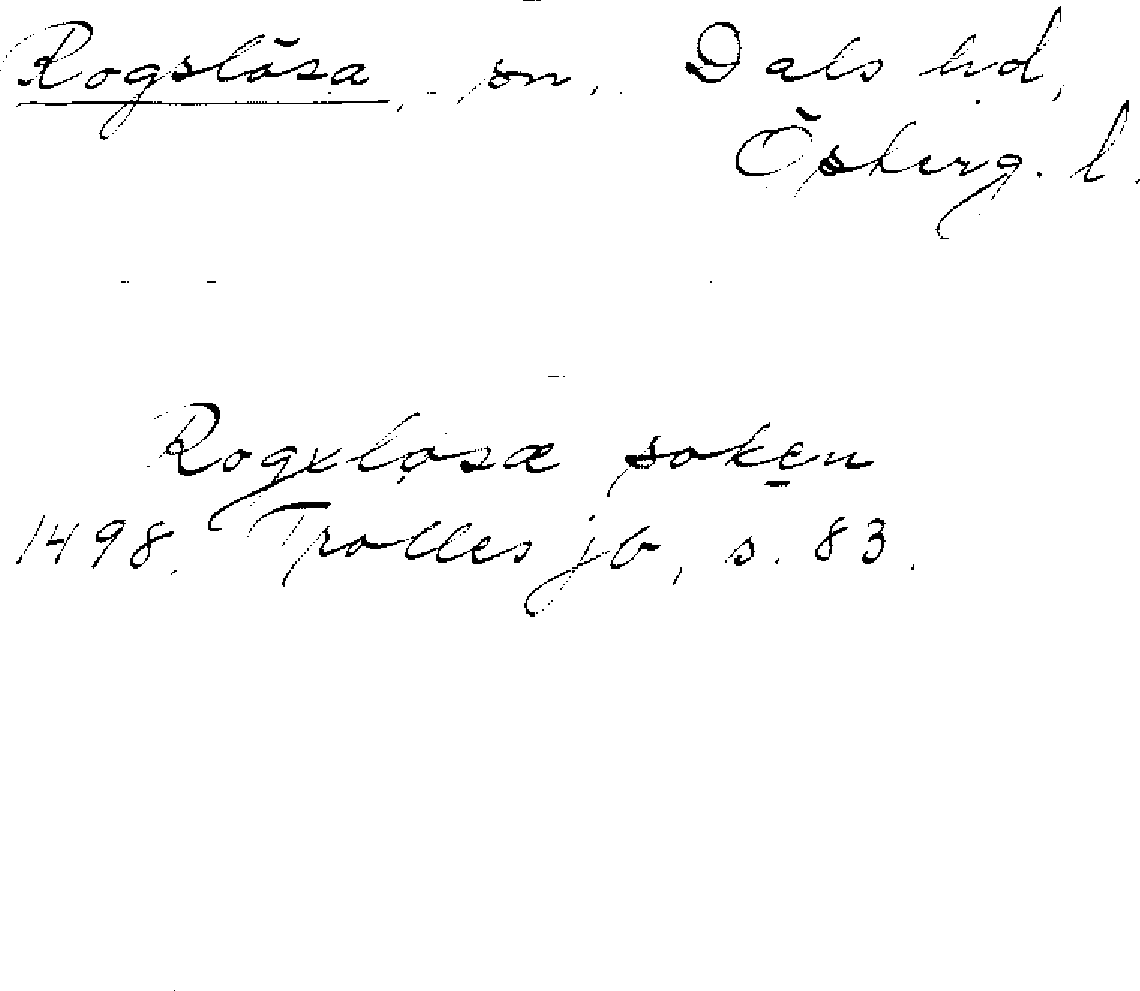 Rogslösa, sn, Dals hd,
Österg. l.
Rogxløsæ soken
1498. Trolles jb, s. 83.